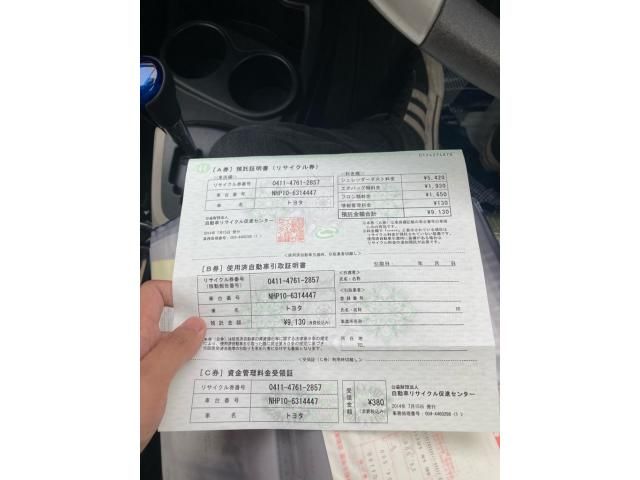 [A券] 預託証明書 (リサイクル券)
リサイクル券番号 0411-4761-2857
車台番号 NHP10-6314447
車名 トヨタ
シュレッダーダスト料金 ¥5,420
エアバッグ類料金 ¥1,930
フロン類料金 ¥1,650
情報管理料金 ¥130
預託金額合計 ¥9,130
公益財団法人
自動車リサイクル促進センター
2014年 7月15日 発行
<使用済自動車引取時、引取業者切離し>
[B券] 使用済自動車引取証明書
引取日: 年 月 日
リサイクル券番号
(移動報告番号) 0411-4761-2857
車台番号 NHP10-6314447
車名 トヨタ
預託金額 ¥9,130 (消費税込み)
<引取業者>
登録番号
氏名・名称
事業所名
所在地
TEL
[C券] 資金管理料金受領証
リサイクル券番号 0411-4761-2857
車台番号 NHP10-6314447
車名 トヨタ
受領金額 ¥380
(消費税込み)
公益財団法人
自動車リサイクル促進センター
2014年 7月15日 発行